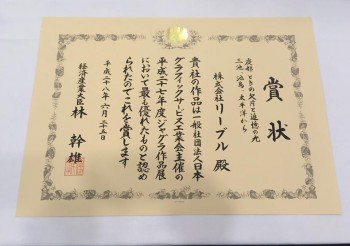 賞状
三池 池島 太平洋から
株式会社リーブル 殿
貴社の作品は一般社団法人日本
グラフィックサービス工業会主催の
平成二十七年度ジャグラ作品展
において最も優れたものと認め
られたのでこれを賞します
平成二十八年六月二十五日
経済産業大臣 林 幹雄